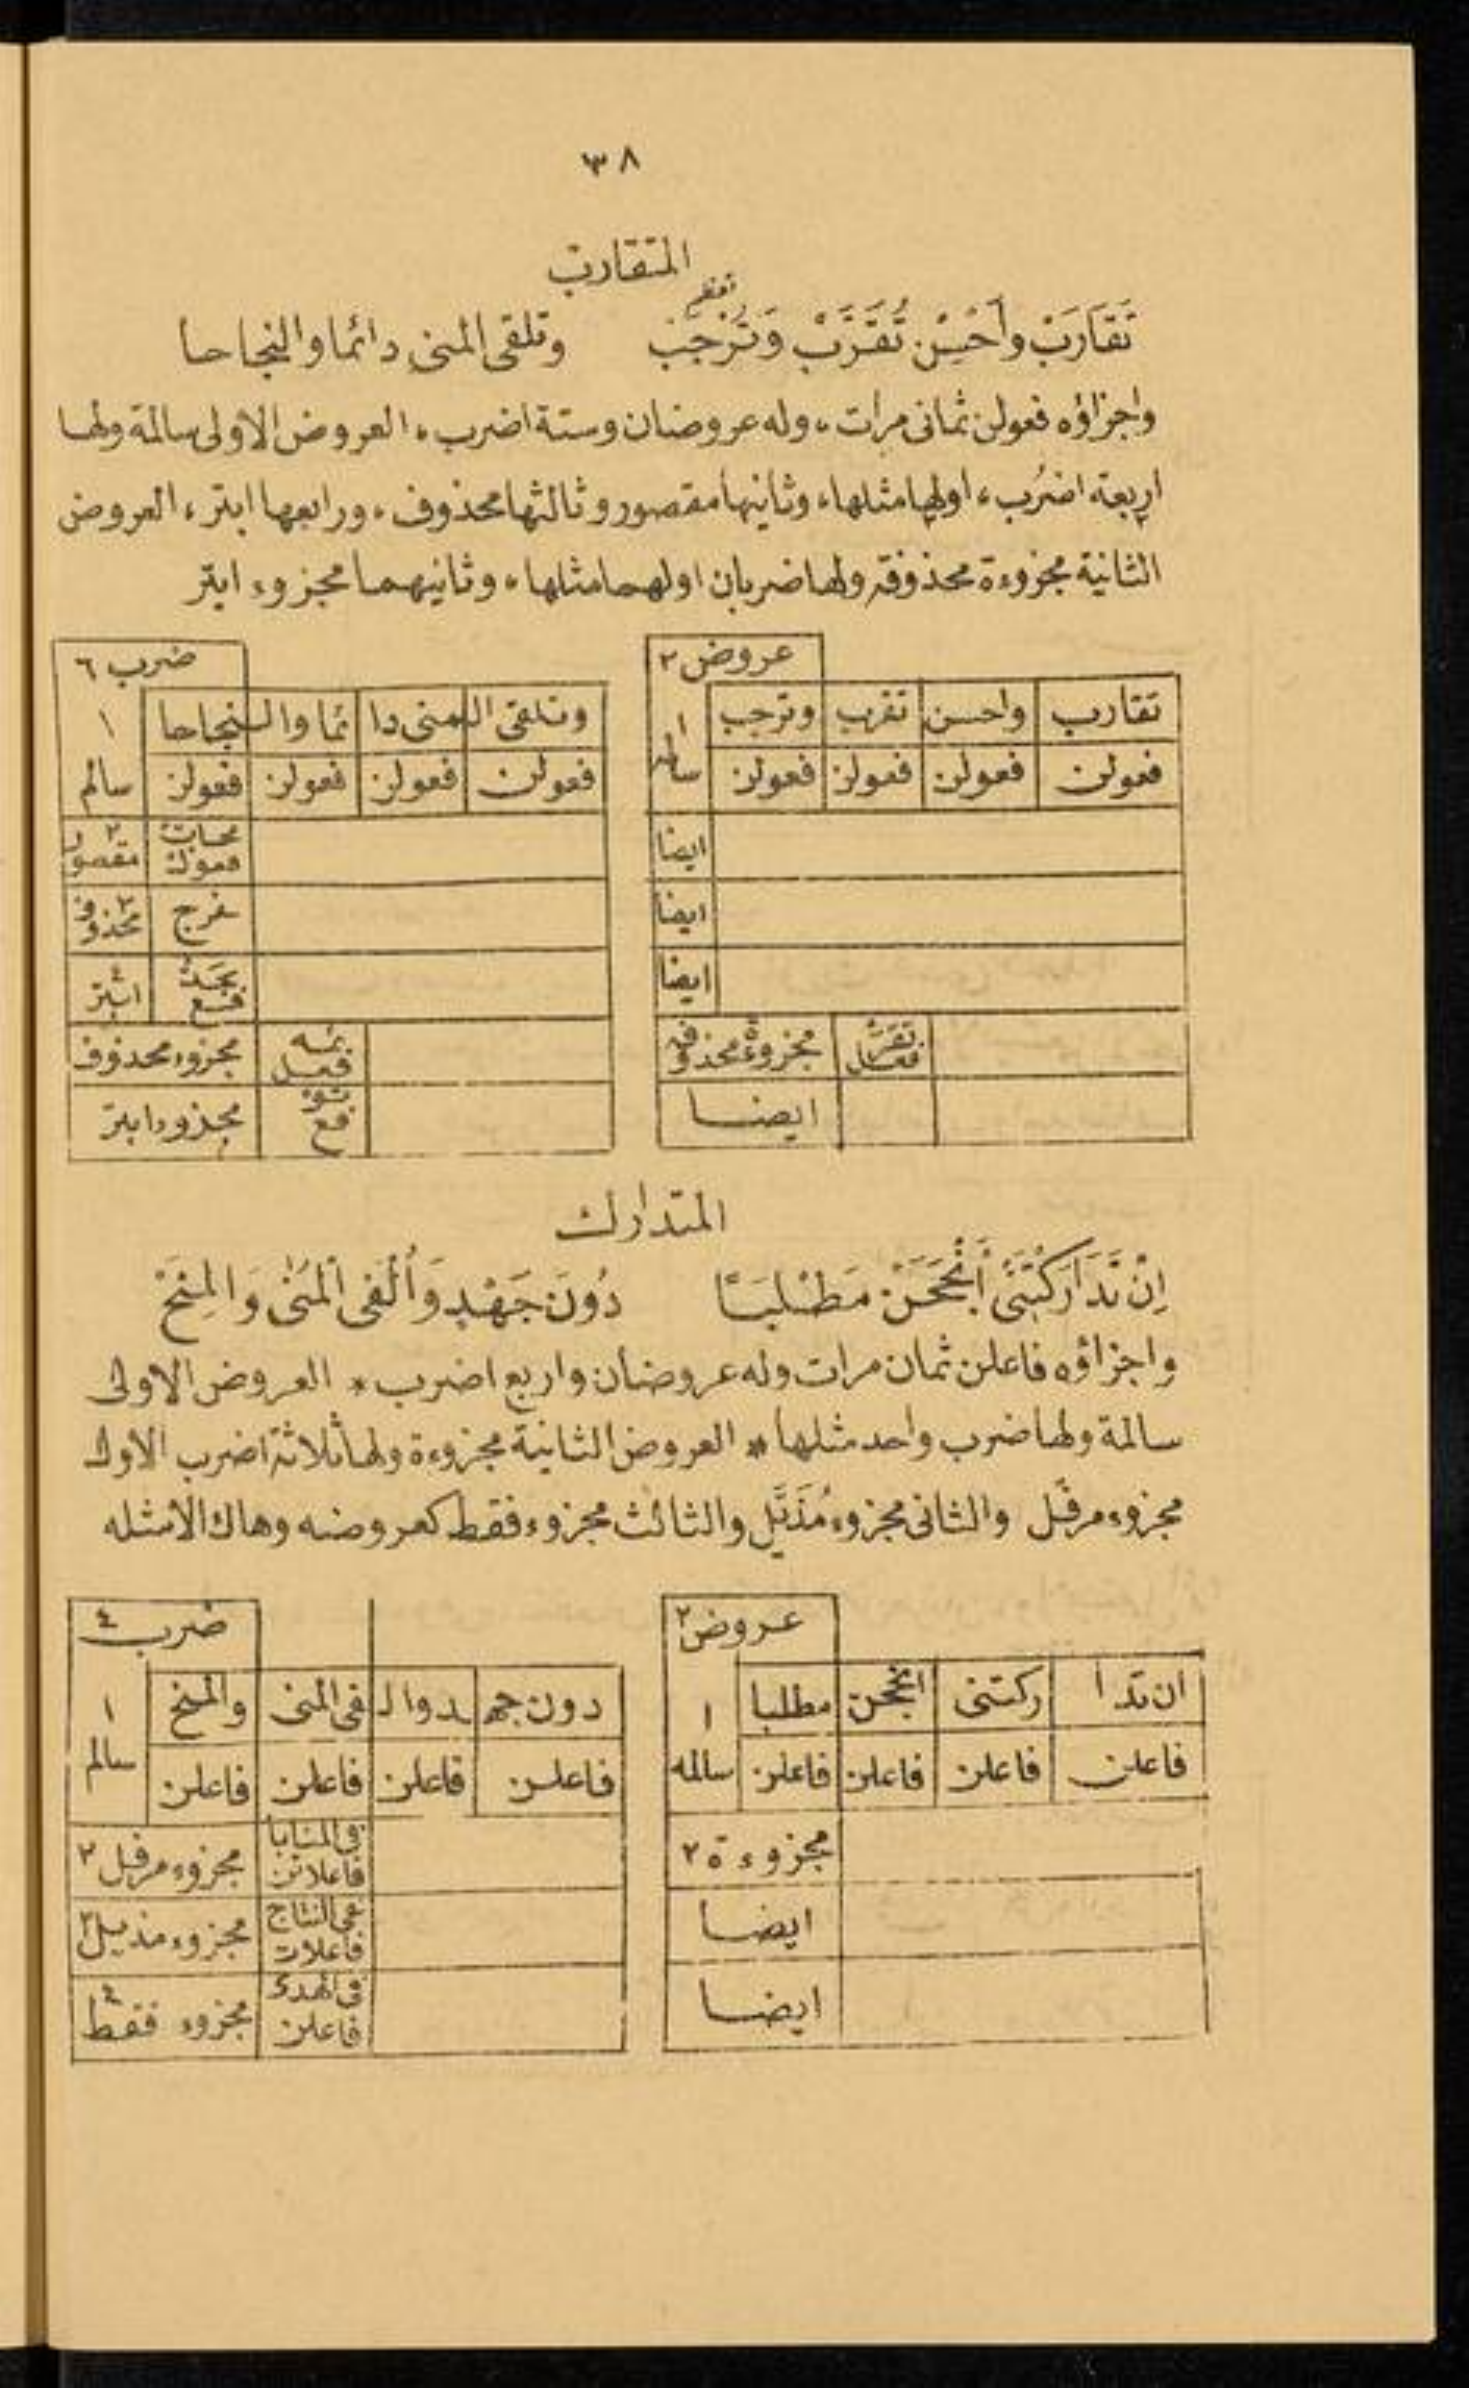 ٣٨
المتقارب
تعظم
تَقَارَبْ وأَحْسِنْ تُقَرَّبْ وَتُرْجَبْ وتلقى المنى دائما والنجاحا
واجزاؤه فعولن ثمانى مرات، وله عروضان وستة اضرب، العروض الاولى سالمة ولها
اربعة اضرُب، اولها مثلها، وثانيها مقصور وثالثها محذوف، ورابعها ابتر، العروض
الثانية مجزوءة محذوفة ولها ضربان اولهما مثلها، وثانيهما مجزوء ابتر
عروض ٢
تقارب واحسن تقرب وترجب ١
فعولن فعولن فعولن فعولن سالمه
ايضا
ايضا
ايضا
تقرْ فعل مجزوءة محذوفه
ايضا
ضرب ٦
وتلقى ال منى دا ئما وال نجاحا ١
فعولن فعولن فعولن فعولن سالم
فعول ٢ مقصور
فرج ٣ محذوف
فع ٤ ابتر
فعل مجزوء محذوف
فع مجزوء ابتر
المتدارك
اِنْ تَدَارَكْتَنِى أَنْجَحَنْ مَطْلَبًا دُونَ جَهْدٍ وَأُلْفِى المُنٰى وَالمِنَحْ
واجزاؤه فاعلن ثمان مرات وله عروضان واربع اضرب * العروض الاولى
سالمة ولها ضرب واحد مثلها * العروض الثانية مجزوءة ولها ثلاثة اضرب الاول
مجزوء مرفّل والثانى مجزوء مُذَيَّل والثالث مجزوء فقط كعروضه وهاك الامثله
عروض ٢
ان تدا ركتنى انجحن مطلبا ١
فاعلن فاعلن فاعلن فاعلن سالمه
مجزوءة ٢
ايضا
ايضا
ضرب ٤
دون جهـ ـد وال فى المنى والمنح ١
فاعلن فاعلن فاعلن فاعلن سالم
فى المنايا فاعلاتن مجزوء مرفل ٢
فى النتاج فاعلات مجزوء مذيل ٣
فى الهدى فاعلن مجزوء فقط ٤